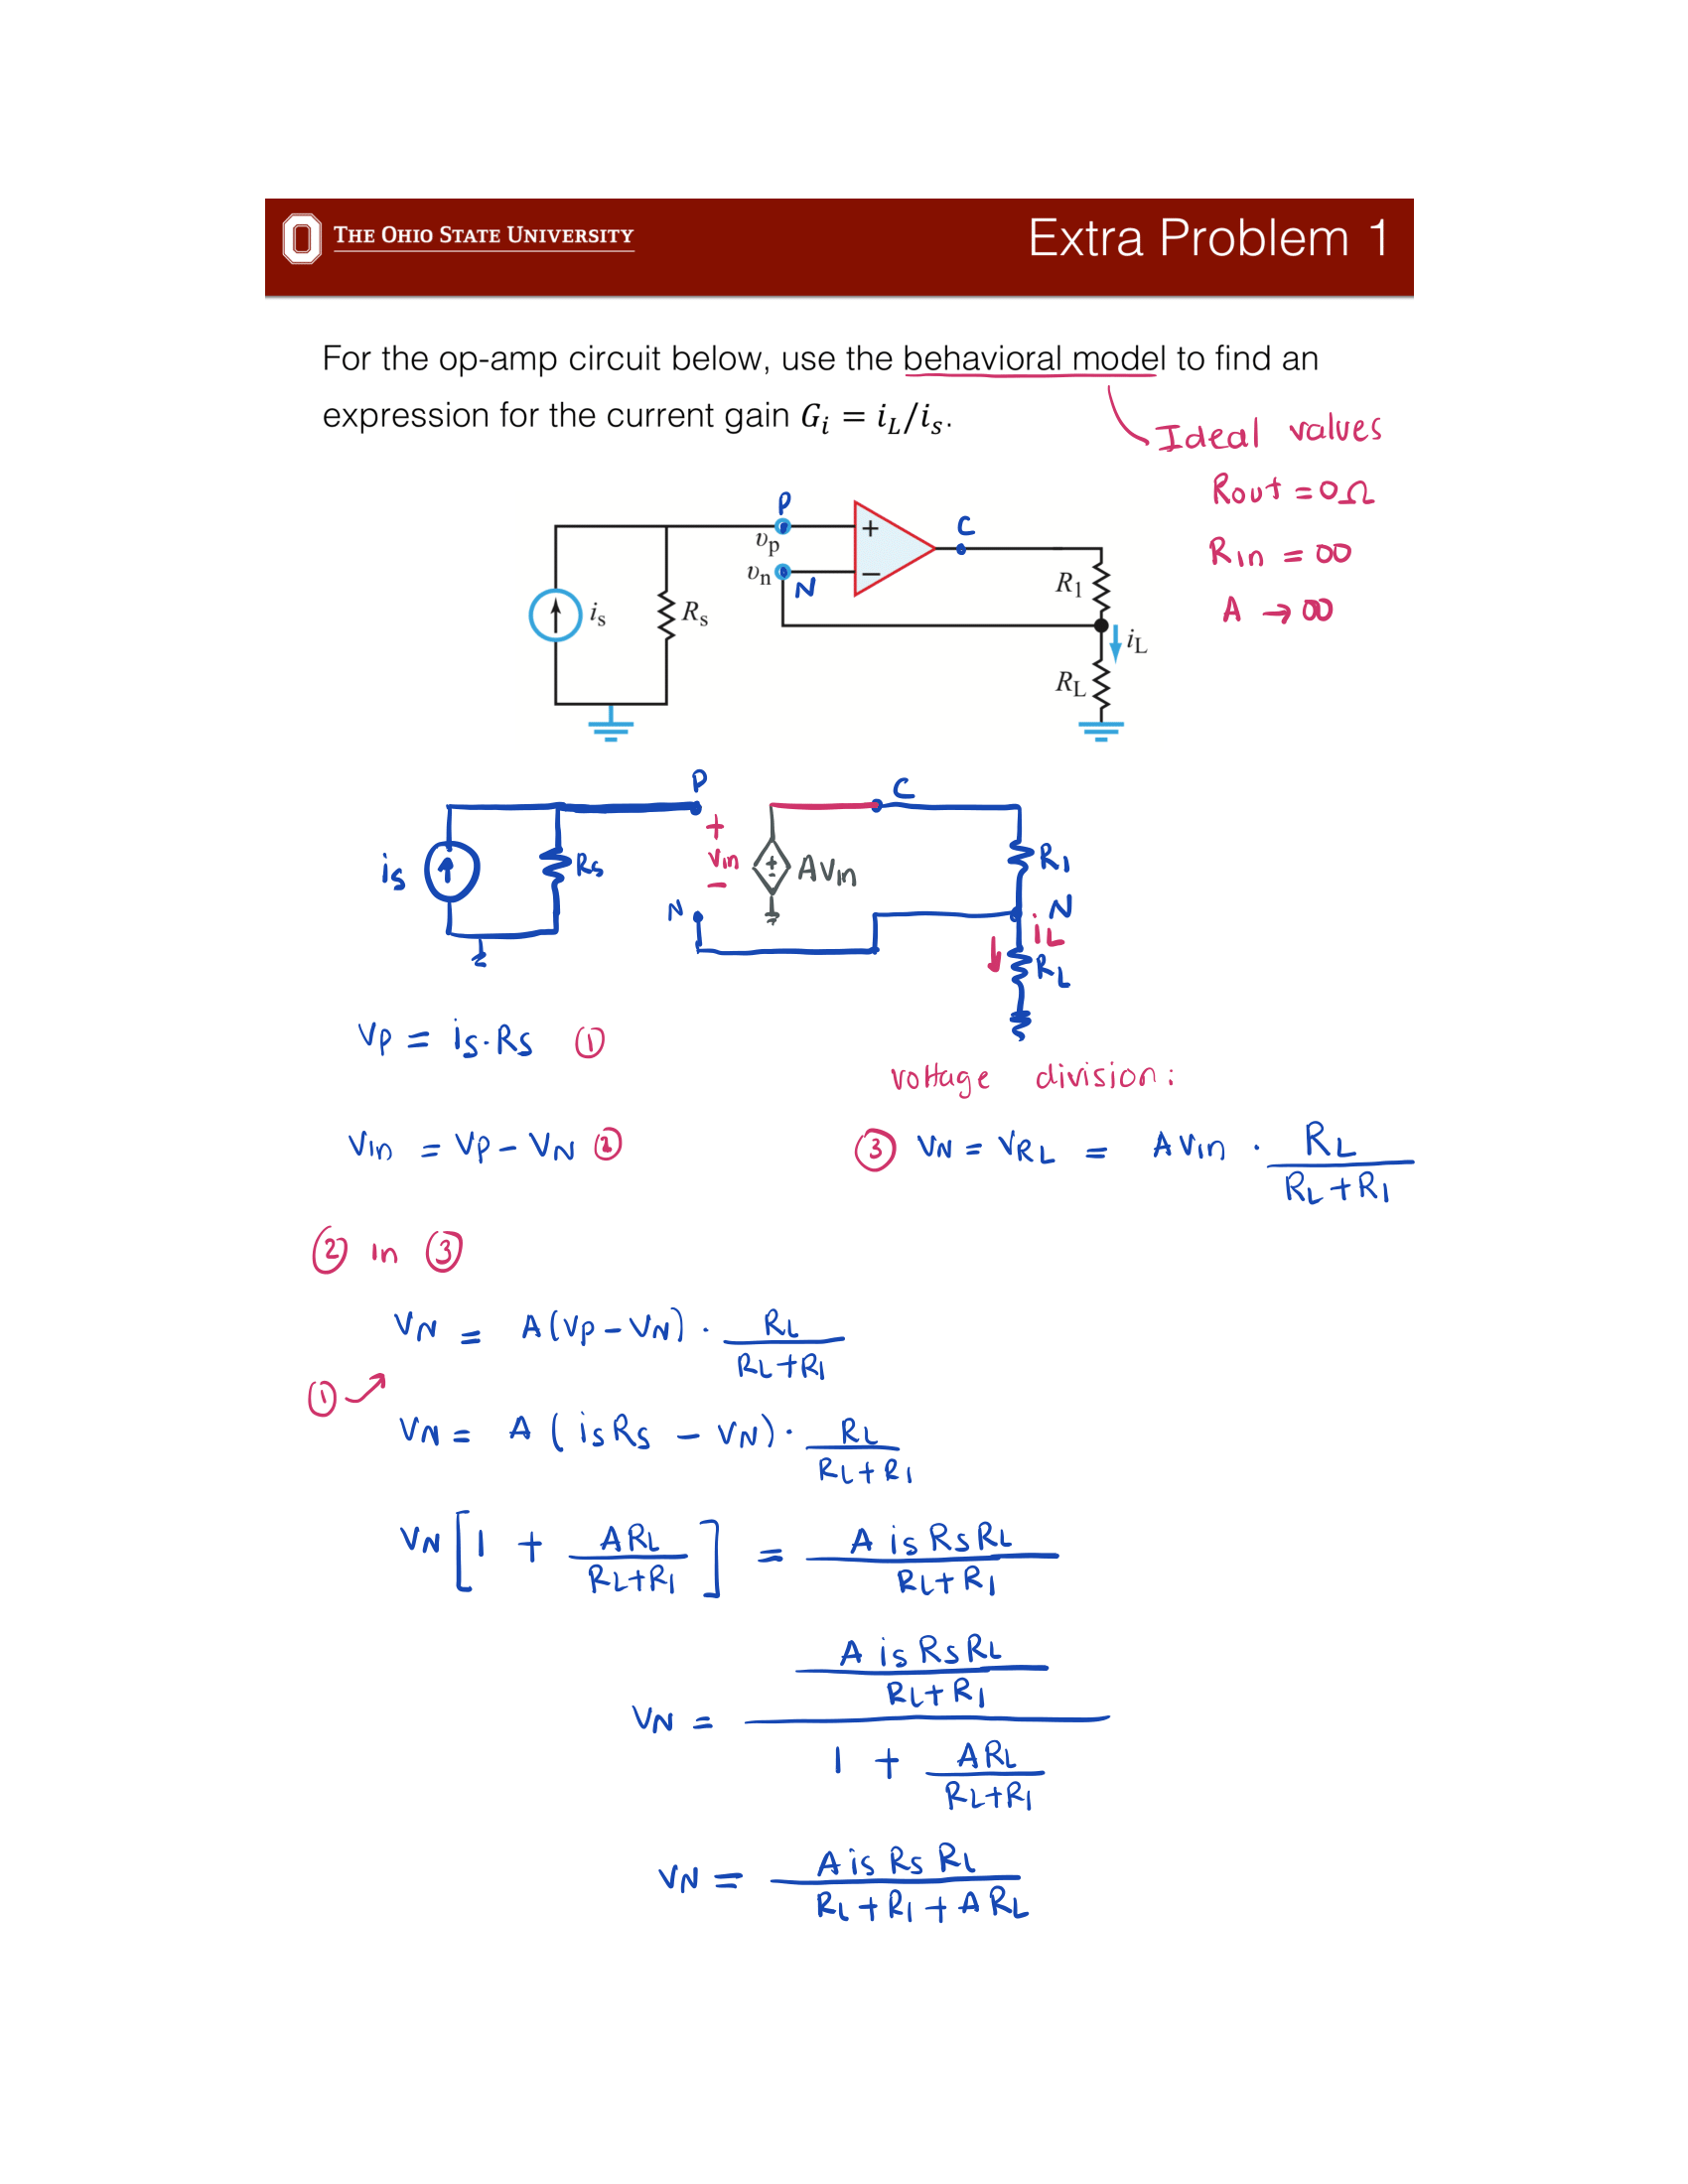 THE OHIO STATE UNIVERSITY
Extra Problem 1
For the op-amp circuit below, use the behavioral model to find an
expression for the current gain G_i = i_L/i_s.
Ideal values
Rout = 0Ω
Rin = ∞
A → ∞
P
C
υp
υn
N
+
−
is
Rs
R1
iL
RL
P
C
+
vin
−
is
Rs
+
-
Avin
R1
N
N
iL
RL
vp = is·Rs ①
voltage division:
vin = vp − vN ②
③ vN = vRL = A vin · RL / (RL + R1)
② in ③
vN = A(vp − vN) · RL / (RL + R1)
①
vN = A ( is Rs − vN) · RL / (RL + R1)
vN [ 1 + ARL / (RL + R1) ] = A is Rs RL / (RL + R1)
vN = (A is Rs RL / (RL + R1)) / (1 + ARL / (RL + R1))
vN = A is Rs RL / (RL + R1 + A RL)